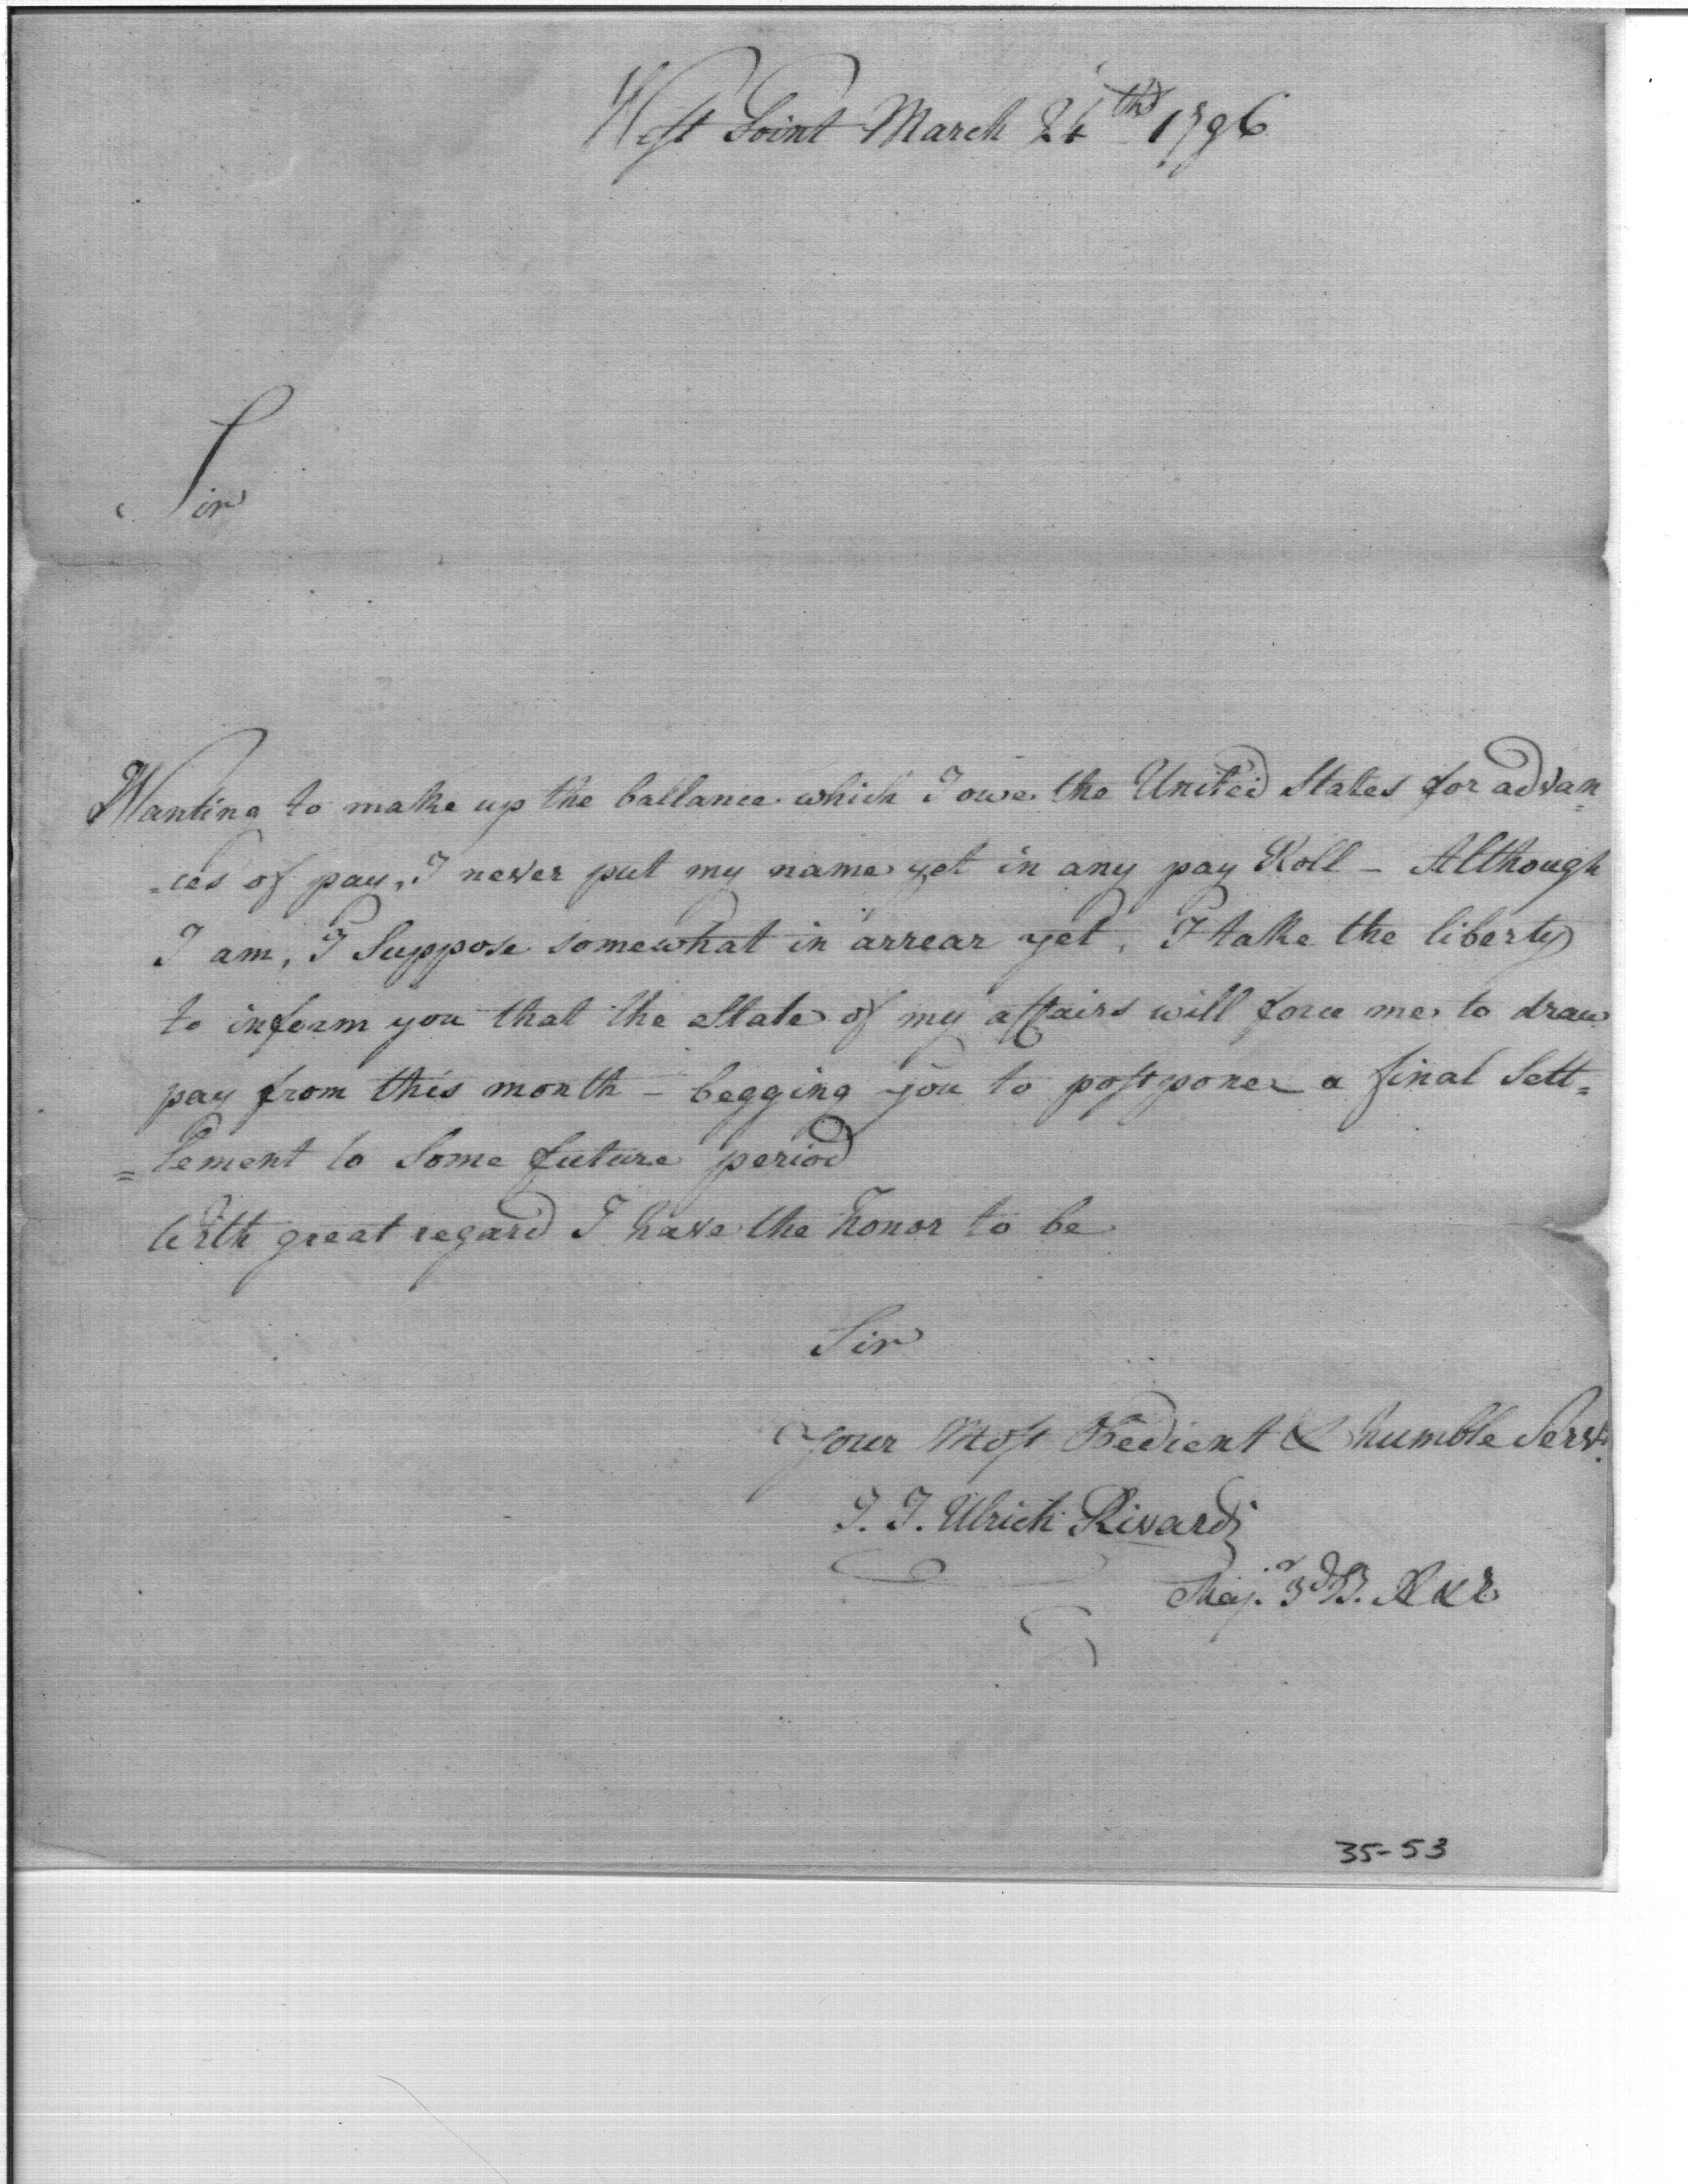 West Point March 24th 1796
Sir
Wanting to make up the ballance which I owe the United States for advan=
=ces of pay, I never put my name yet in any pay Roll – Although
I am, I Suppose somewhat in arrear yet, I take the liberty
to inform you that the State of my affairs will force me to draw
pay from this month – begging you to postpone a final Sett=
=lement to Some future period
With great regard I have the honor to be
Sir
Your Most Obedient & humble Servt.
J. J. Ulrich Rivardi
Maj.r 3d B. A & E
35-53